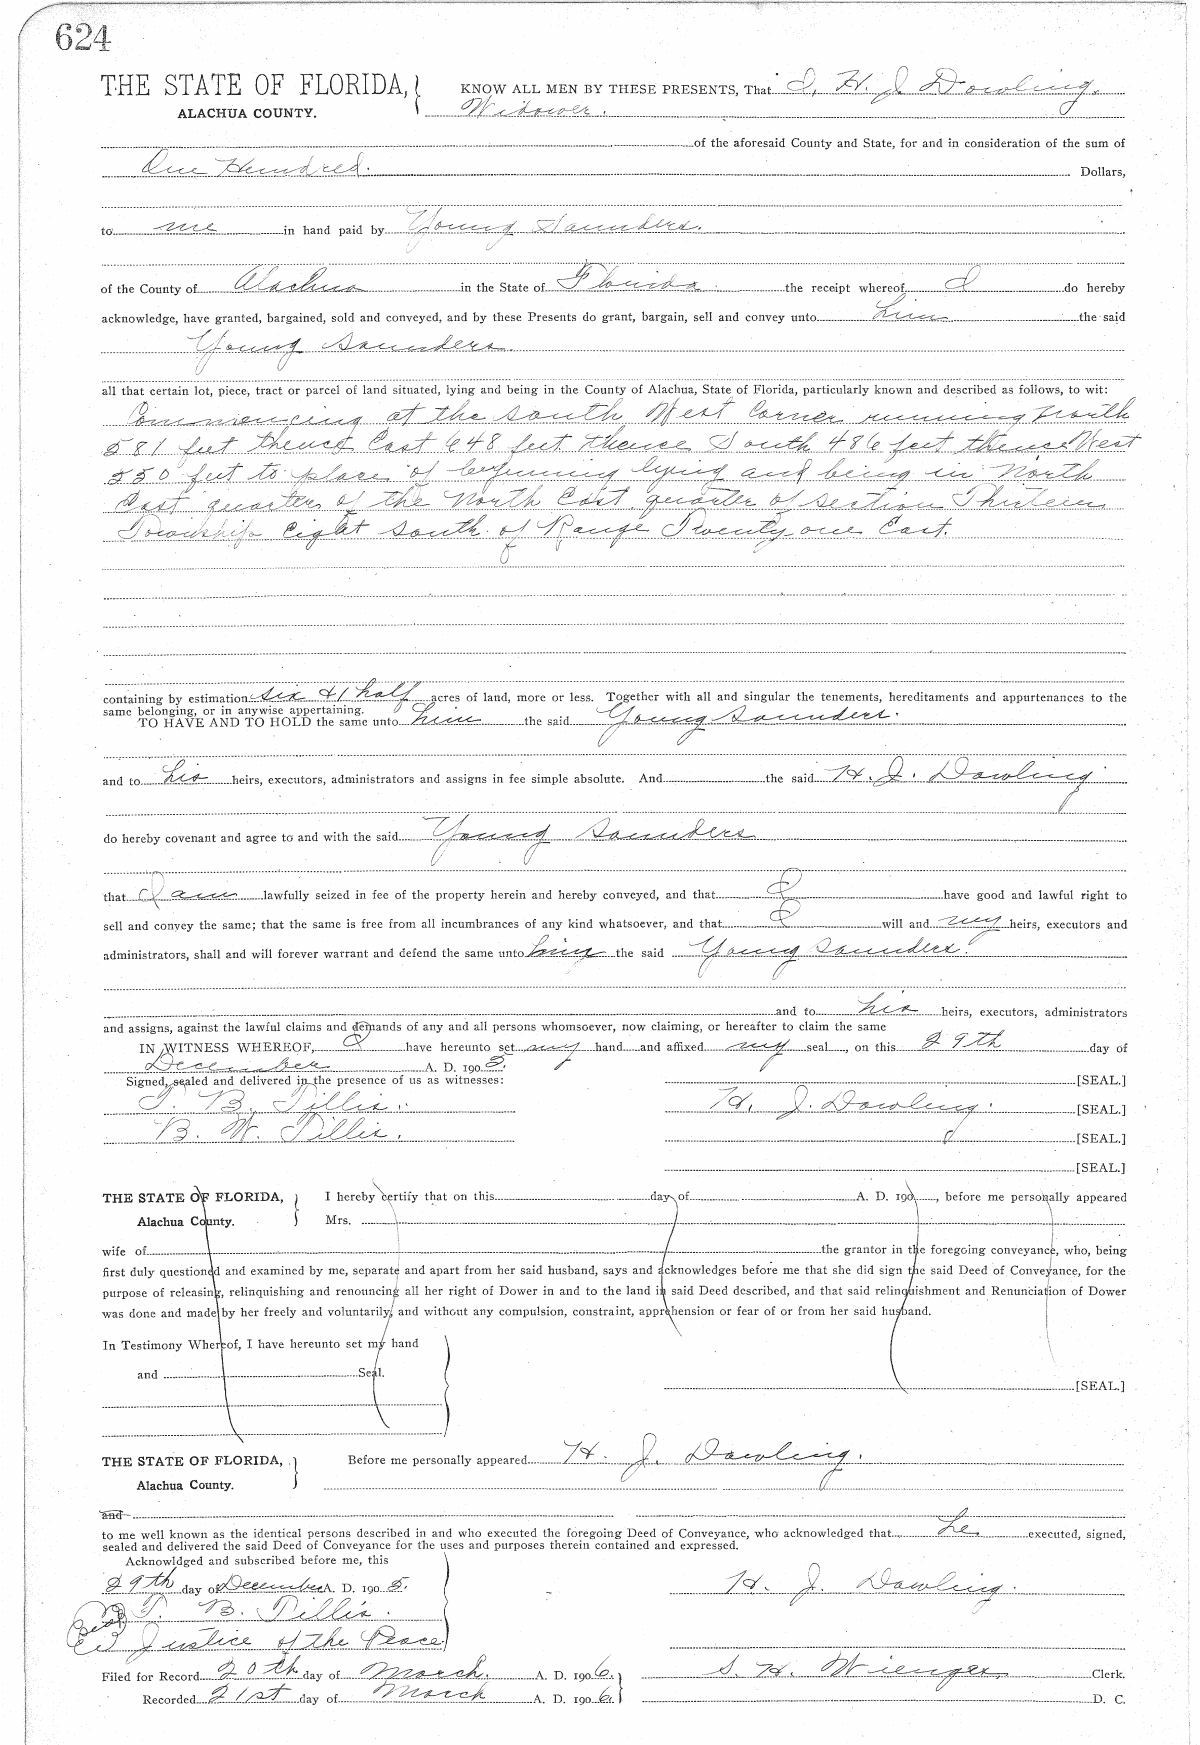 624
THE STATE OF FLORIDA, KNOW ALL MEN BY THESE PRESENTS, That I, H. J Dowling,
ALACHUA COUNTY. Widower.
of the aforesaid County and State, for and in consideration of the sum of
One Hundred. Dollars,
to me in hand paid by Young Saunders.
of the County of Alachua in the State of Florida the receipt whereof I do hereby
acknowledge, have granted, bargained, sold and conveyed, and by these Presents do grant, bargain, sell and convey unto him the said
Young Saunders.
all that certain lot, piece, tract or parcel of land situated, lying and being in the County of Alachua, State of Florida, particularly known and described as follows, to wit:
Commencing at the South West Corner running North
581 feet thence East 648 feet thence South 486 feet thence West
550 feet to place of beginning lying and being in North
East quarter of the North East quarter of section Thirteen
Township eight South of Range Twenty one East.
containing by estimation six & 1 half acres of land, more or less. Together with all and singular the tenements, hereditaments and appurtenances to the
same belonging, or in anywise appertaining.
TO HAVE AND TO HOLD the same unto him the said Young Saunders.
and to his heirs, executors, administrators and assigns in fee simple absolute. And the said H. J. Dowling
do hereby covenant and agree to and with the said Young Saunders
that I am lawfully seized in fee of the property herein and hereby conveyed, and that I have good and lawful right to
sell and convey the same; that the same is free from all incumbrances of any kind whatsoever, and that I will and my heirs, executors and
administrators, shall and will forever warrant and defend the same unto him the said Young Saunders.
and to his heirs, executors, administrators
and assigns, against the lawful claims and demands of any and all persons whomsoever, now claiming, or hereafter to claim the same
IN WITNESS WHEREOF, I have hereunto set my hand and affixed my seal, on this 29th day of
December A. D. 1905.
Signed, sealed and delivered in the presence of us as witnesses: [SEAL.]
T. B. Tillis. H. J. Dowling. [SEAL.]
B. W. Tillis. [SEAL.]
[SEAL.]
THE STATE OF FLORIDA, I hereby certify that on this day of A. D. 190 , before me personally appeared
Alachua County. Mrs.
wife of the grantor in the foregoing conveyance, who, being
first duly questioned and examined by me, separate and apart from her said husband, says and acknowledges before me that she did sign the said Deed of Conveyance, for the
purpose of releasing, relinquishing and renouncing all her right of Dower in and to the land in said Deed described, and that said relinquishment and Renunciation of Dower
was done and made by her freely and voluntarily, and without any compulsion, constraint, apprehension or fear of or from her said husband.
In Testimony Whereof, I have hereunto set my hand
and Seal.
[SEAL.]
THE STATE OF FLORIDA, Before me personally appeared H. J. Dowling.
Alachua County.
and
to me well known as the identical persons described in and who executed the foregoing Deed of Conveyance, who acknowledged that he executed, signed,
sealed and delivered the said Deed of Conveyance for the uses and purposes therein contained and expressed.
Acknowldged and subscribed before me, this
29th day of December A. D. 1905. H. J. Dowling.
T. B. Tillis.
Seal Justice of the Peace
Filed for Record 20th day of March. A. D. 1906. S. H. Wienges Clerk.
Recorded 21st day of March A. D. 1906. D. C.